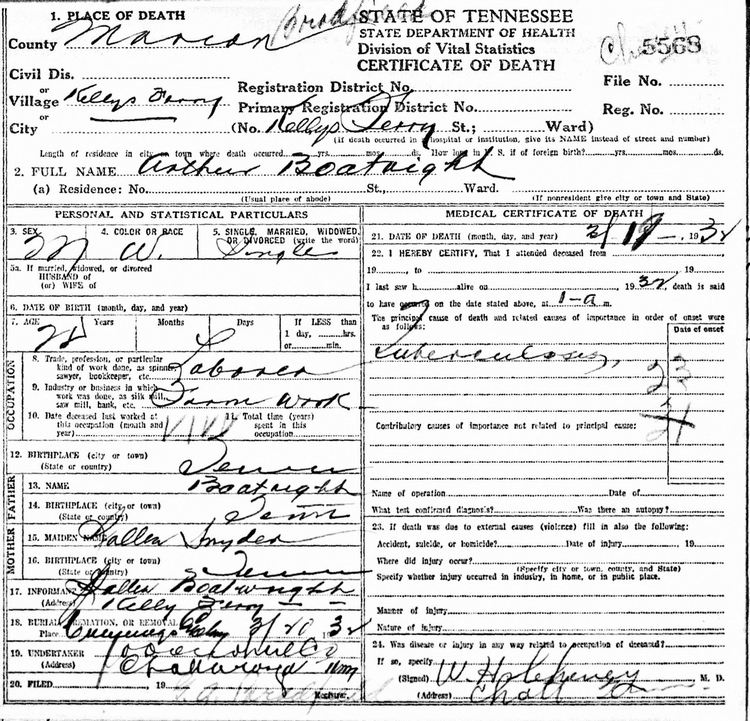 1. PLACE OF DEATH
STATE OF TENNESSEE
County Marion
STATE DEPARTMENT OF HEALTH
Division of Vital Statistics
CERTIFICATE OF DEATH
5568
Civil Dis.
or
Village Kellys Ferry
or
City
Registration District No.
File No.
Primary Registration District No.
Reg. No.
(No. Kellys Ferry St.; Ward)
(If death occurred in hospital or institution, give its NAME instead of street and number)
Length of residence in city or town where death occurred yrs. mos. ds. How long in U. S. if of foreign birth? yrs. mos. ds.
2. FULL NAME Arthur Boatright
(a) Residence: No. St., Ward.
(Usual place of abode) (If nonresident give city or town and State)
PERSONAL AND STATISTICAL PARTICULARS
3. SEX M
4. COLOR OR RACE W.
5. SINGLE, MARRIED, WIDOWED, OR DIVORCED (write the word) Single
5a. If married, widowed, or divorced
HUSBAND of
(or) WIFE of
6. DATE OF BIRTH (month, day, and year)
7. AGE Years Months Days If LESS than
1 day, hrs.
or min.
OCCUPATION
8. Trade, profession, or particular
kind of work done, as spinner,
sawyer, bookkeeper, etc. Laborer
9. Industry or business in which
work was done, as silk mill,
saw mill, bank, etc. Farm Work
10. Date deceased last worked at
this occupation (month and
year)
11. Total time (years)
spent in this
occupation
12. BIRTHPLACE (city or town)
(State or country) Tenn
FATHER
13. NAME Boatright
14. BIRTHPLACE (city or town)
(State or country) Tenn
MOTHER
15. MAIDEN NAME Snyder
16. BIRTHPLACE (city or town)
(State or country) Tenn
17. INFORMANT Boatwright
(Address) Kelly Ferry
18. BURIAL, CREMATION, OR REMOVAL
Place 3/20 32
19. UNDERTAKER
(Address)
20. FILED 19
Registrar.
MEDICAL CERTIFICATE OF DEATH
21. DATE OF DEATH (month, day, and year) 3/19 - 1932
22. I HEREBY CERTIFY, That I attended deceased from
19 , to 19
I last saw h alive on 1932, death is said
to have occurred on the date stated above, at 1-a m.
The principal cause of death and related causes of importance in order of onset were
as follows:
Date of onset
Tuberculosis,
23
Contributory causes of importance not related to principal cause:
Name of operation Date of
What test confirmed diagnosis? Was there an autopsy?
23. If death was due to external causes (violence) fill in also the following:
Accident, suicide, or homicide? Date of injury 19
Where did injury occur?
(Specify city or town, county, and State)
Specify whether injury occurred in industry, in home, or in public place.
Manner of injury
Nature of injury
24. Was disease or injury in any way related to occupation of deceased?
If so, specify
(Signed) M. D.
(Address) Chatt